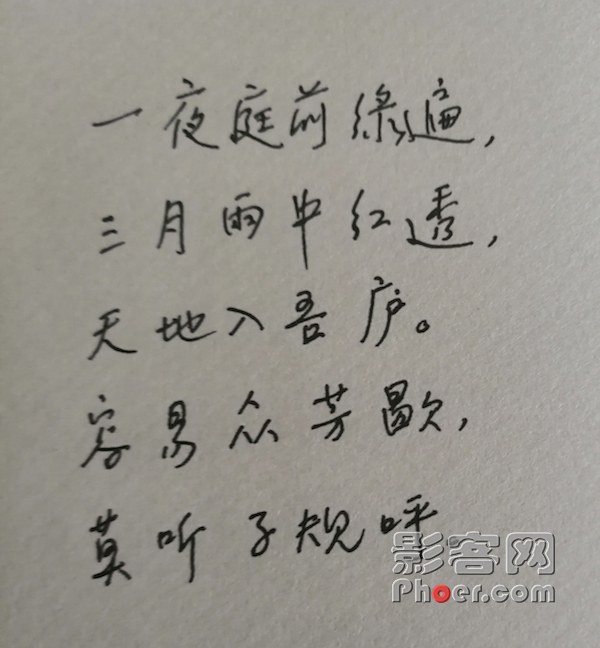 一夜庭前绿遍，
三月雨中红透，
天地入吾庐。
容易众芳歇，
莫听子规呼
影客网
Phoer.com